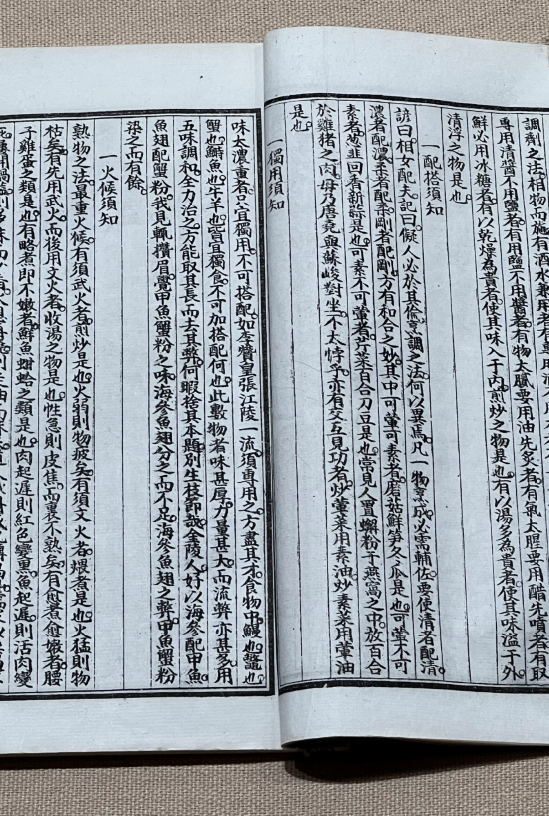 調劑之法。相物而施。有酒水兼用者。有
專用清醬不用鹽者。有用鹽不用醬者。有物太膩要用油先炙者。有氣太腥要用醋先噴者。有取
鮮必用冰糖者。有以乾燥為貴者。使其味入于內。煎炒之物是也。有以湯多為貴者。使其味溢于外。
清浮之物是也。
一配搭須知
諺曰相女配夫。記曰儗人必於其倫。烹調之法。何以異焉。凡一物烹成。必需輔佐。要使清者配清。
濃者配濃。柔者配柔。剛者配剛。方有和合之妙。其中可葷可素者。蘑菇鮮筍冬瓜是也。可葷不可
素者。葱韭茴香新蒜是也。可素不可葷者。芹菜百合刀豆是也。常見人置蟹粉于燕窩之中。放百合
於雞猪之肉。毋乃唐堯與蘇峻對坐。不太悖乎。亦有交互見功者。炒葷菜用素油。炒素菜用葷油
是也。
一獨用須知
味太濃重者。只宜獨用。不可搭配。如李贊皇張江陵一流。須專用之。方盡其才。食物中鰻也。鼈也。
蟹也。鰣魚也。牛羊也。皆宜獨食。不可加搭配。何也。此數物者。味甚厚。力量甚大。而流弊亦甚多。用
五味調和。全力治之。方能取其長而去其弊。何暇捨其本題。別生枝節哉。金陵人好以海參配甲魚。
魚翅配蟹粉。我見輒攢眉。覺甲魚蟹粉之味。海參魚翅分之而不足。海參魚翅之弊。甲魚蟹粉
染之而有餘。
一火候須知
熟物之法。最重火候。有須武火者。煎炒是也。火弱則物疲矣。有須文火者。煨煮是也。火猛則物
枯矣。有先用武火。而後用文火者。收湯之物是也。性急則皮焦。而裏不熟矣。有愈煮愈嫩者。腰
子雞蛋之類是也。有略煮即不嫩者。鮮魚蚶蛤之類是也。肉起遲則紅色變黑。魚起遲則活肉變